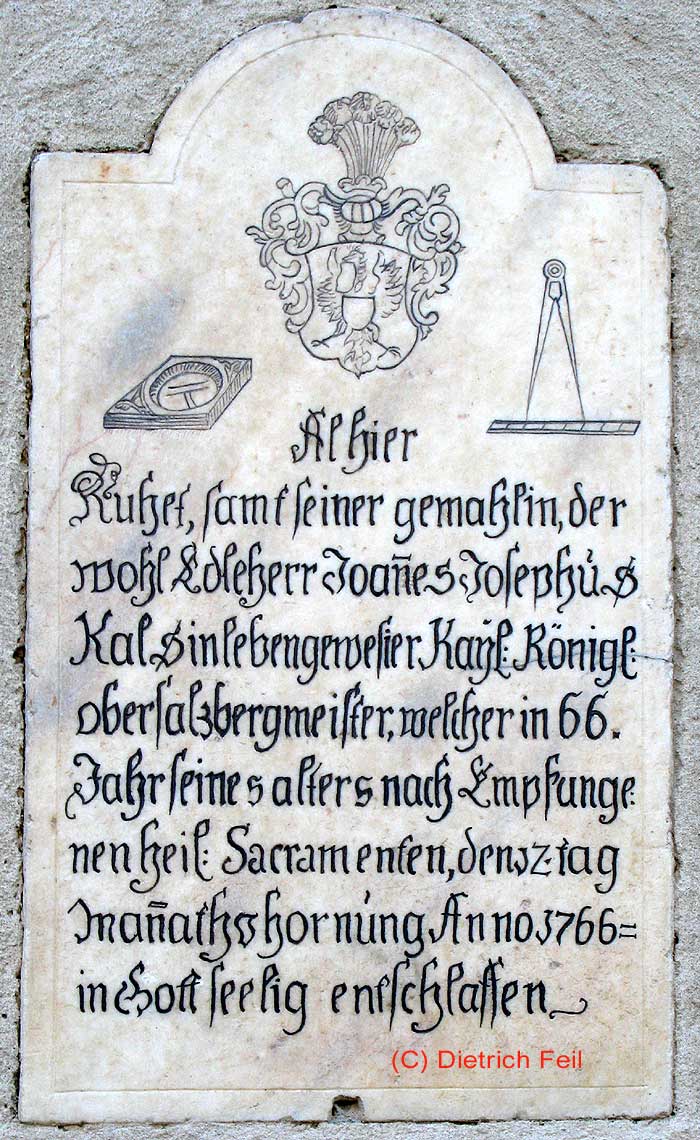 Alhier
Ruhet, samt seiner gemahlin, der
wohl Edleherr Joan̄es Josephús
Kals inlebengewester Kaÿl: Königl:
obersalzbergmeister, welcher in 66.
Jahr seines alters nach Empfange:
nen heil: Sacramenten, den 12. tag
Man̄aths hornúng Anno 1766=
in Gott seelig entschlaffen
(C) Dietrich Feil